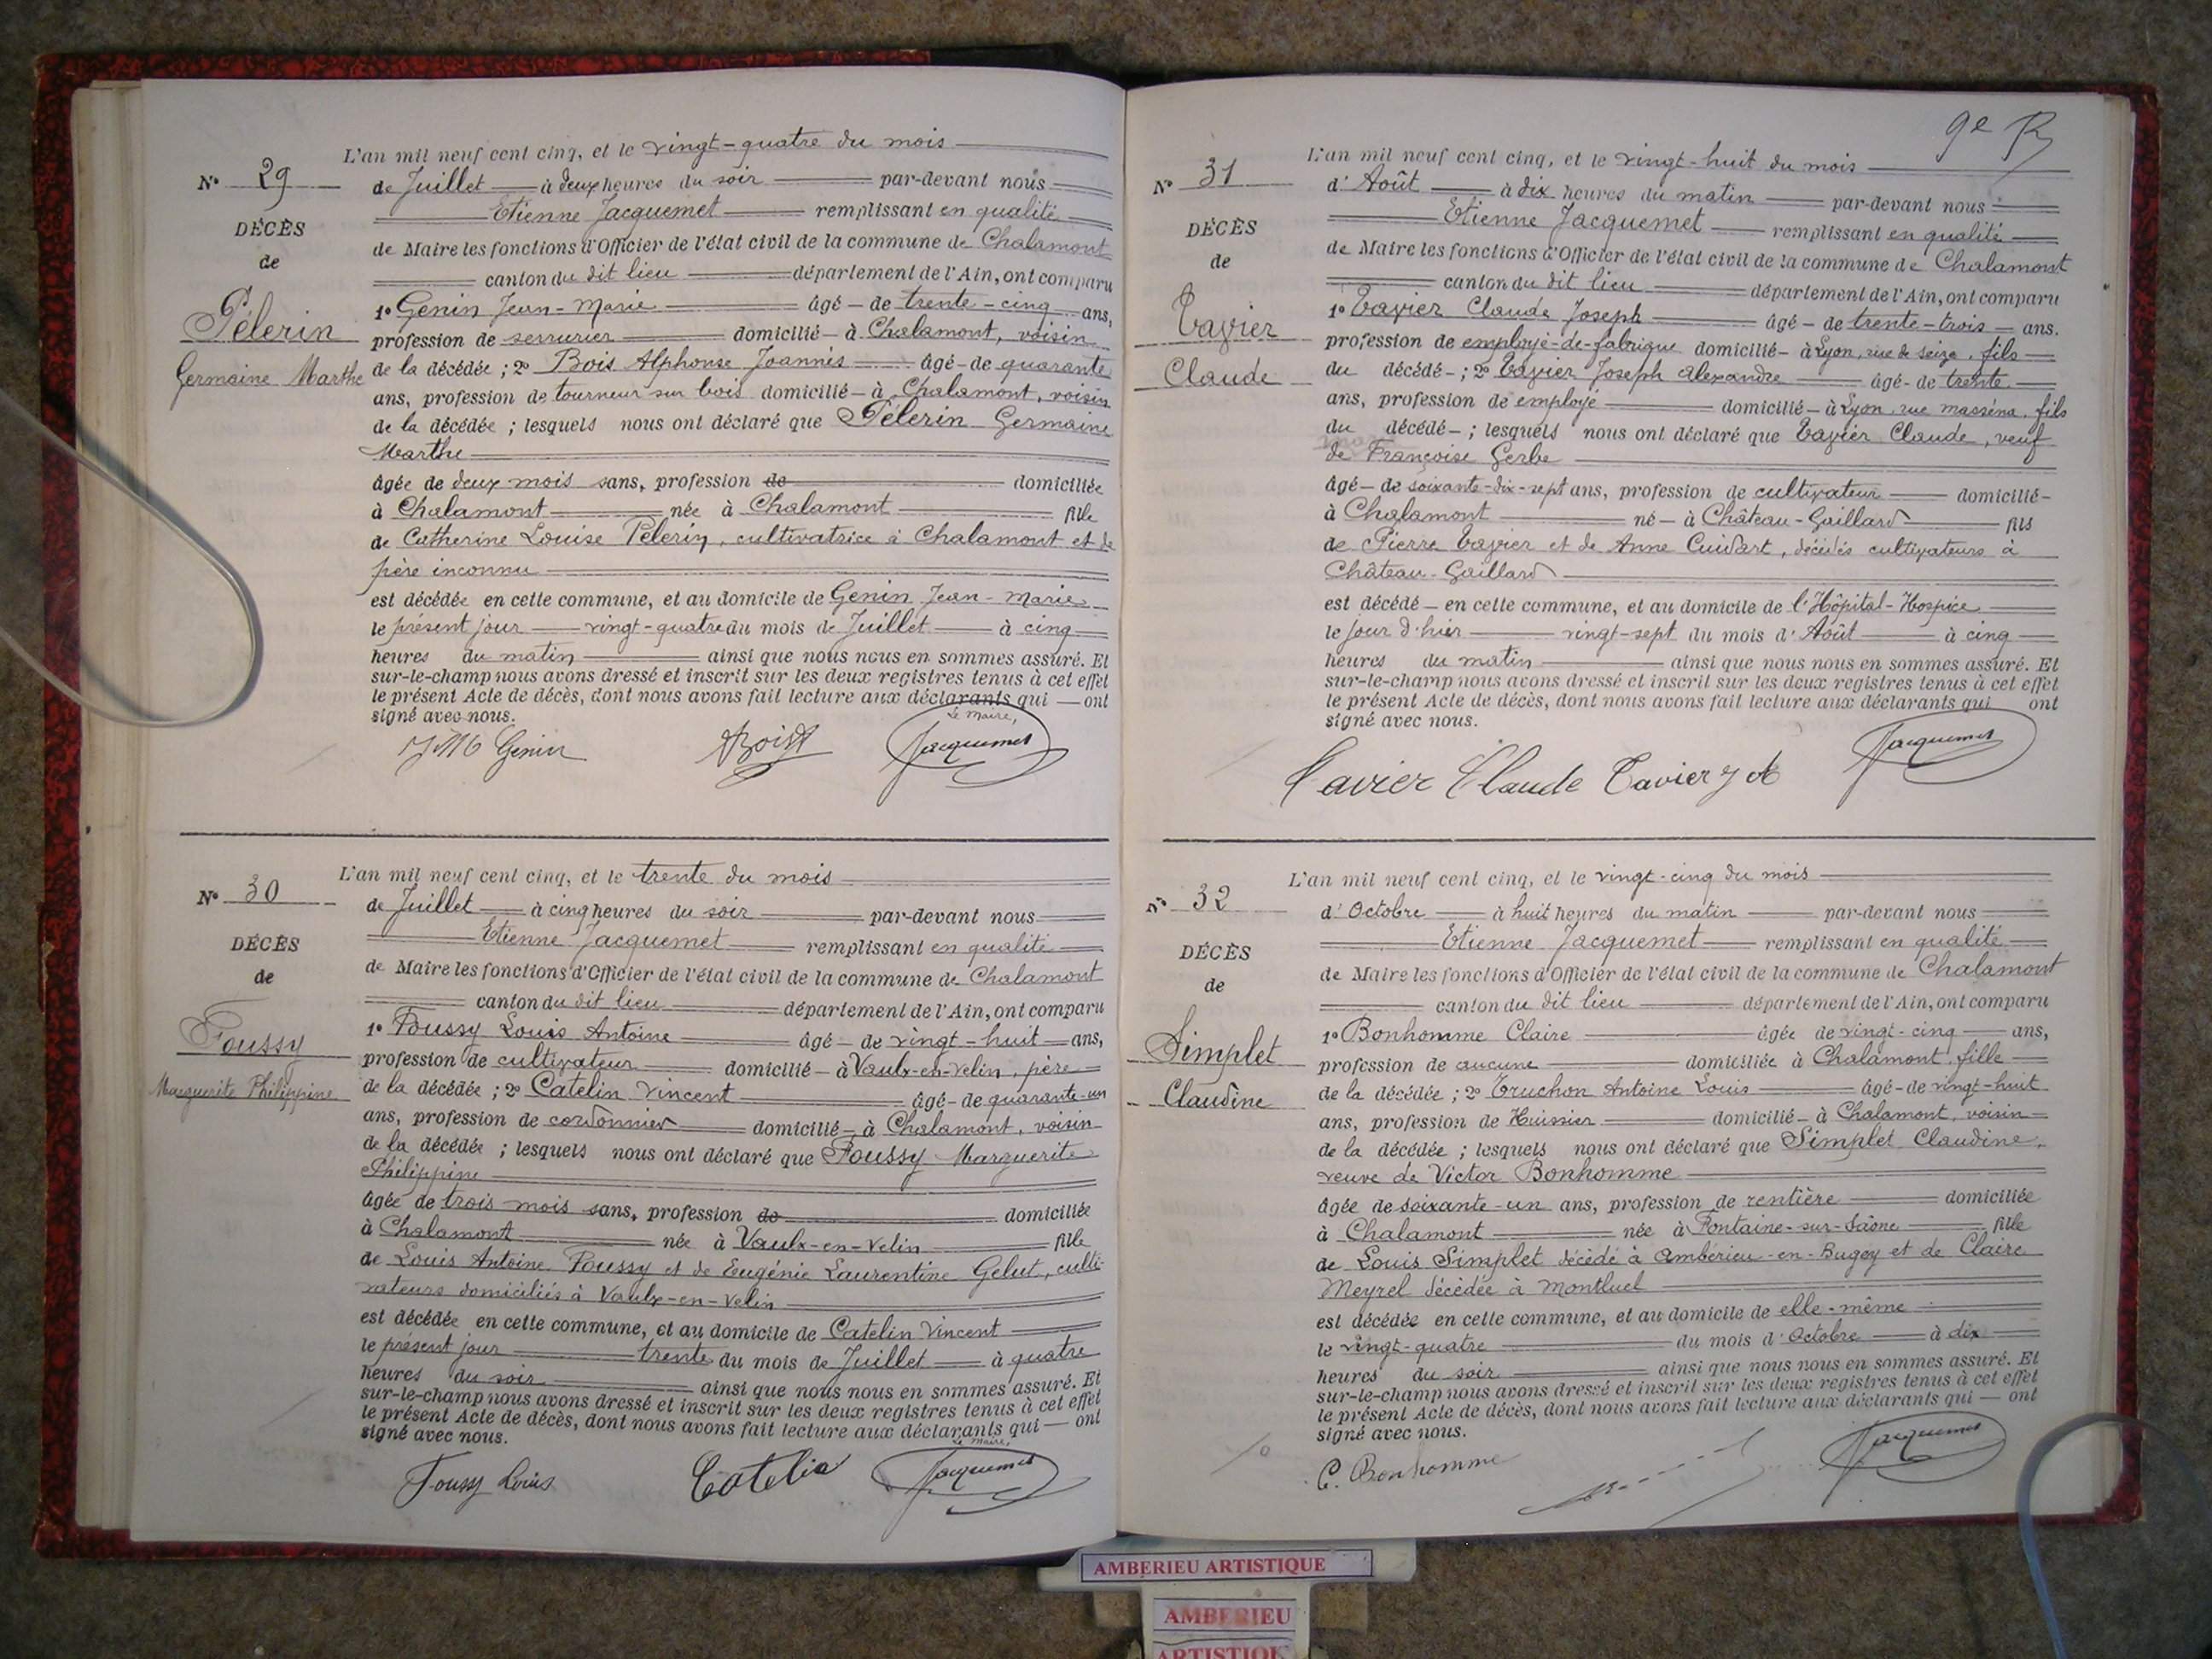 N° 29
DÉCÈS
de
Pélerin
Germaine Marthe
L'an mil neuf cent cinq, et le vingt-quatre du mois
de Juillet à deux heures du soir par-devant nous
Etienne Jacquemet remplissant en qualité
de Maire les fonctions d'Officier de l'état civil de la commune de Chalamont
canton du dit lieu département de l'Ain, ont comparu
1° Genin Jean-Marie âgé de trente-cinq ans,
profession de serrurier domicilié à Chalamont, voisin
de la décédée ; 2° Bois Alphonse Joannès âgé de quarante
ans, profession de tourneur sur bois domicilié à Chalamont, voisin
de la décédée ; lesquels nous ont déclaré que Pélerin Germaine
Marthe
âgée de deux mois sans, profession de domiciliée
à Chalamont née à Chalamont fille
de Catherine Louise Pélerin, cultivatrice à Chalamont et de
père inconnu
est décédée en cette commune, et au domicile de Genin Jean-Marie
le présent jour vingt-quatre du mois de Juillet à cinq
heures du matin ainsi que nous nous en sommes assuré. Et
sur-le-champ nous avons dressé et inscrit sur les deux registres tenus à cet effet
le présent Acte de décès, dont nous avons fait lecture aux déclarants qui ont
signé avec nous.
Le Maire,
JM Genin ABois Jacquemet
N° 30
DÉCÈS
de
Poussy
Marguerite Philippine
L'an mil neuf cent cinq, et le trente du mois
de Juillet à cinq heures du soir par-devant nous
Etienne Jacquemet remplissant en qualité
de Maire les fonctions d'Officier de l'état civil de la commune de Chalamont
canton du dit lieu département de l'Ain, ont comparu
1° Poussy Louis Antoine âgé de vingt-huit ans,
profession de cultivateur domicilié à Vaulx-en-Velin, père
de la décédée ; 2° Catelin Vincent âgé de quarante-un
ans, profession de cordonnier domicilié à Chalamont, voisin
de la décédée ; lesquels nous ont déclaré que Poussy Marguerite
Philippine
âgée de trois mois sans, profession de domiciliée
à Chalamont née à Vaulx-en-Velin fille
de Louis Antoine Poussy et de Eugénie Laurentine Gelut, culti-
vateurs domiciliés à Vaulx-en-Velin
est décédée en cette commune, et au domicile de Catelin Vincent
le présent jour trente du mois de Juillet à quatre
heures du soir ainsi que nous nous en sommes assuré. Et
sur-le-champ nous avons dressé et inscrit sur les deux registres tenus à cet effet
le présent Acte de décès, dont nous avons fait lecture aux déclarants qui ont
signé avec nous.
Le Maire,
Poussy Louis Catelin Jacquemet
9e
N° 31
DÉCÈS
de
Tavier
Claude
L'an mil neuf cent cinq, et le vingt-huit du mois
d'Août à dix heures du matin par-devant nous
Etienne Jacquemet remplissant en qualité
de Maire les fonctions d'Officier de l'état civil de la commune de Chalamont
canton du dit lieu département de l'Ain, ont comparu
1° Tavier Claude Joseph âgé de trente-trois ans.
profession de employé-de-fabrique domicilié à Lyon, rue de seize, fils
du décédé ; 2° Tavier Joseph Alexandre âgé de trente
ans, profession de employé domicilié à Lyon, rue masséna, fils
du décédé ; lesquels nous ont déclaré que Tavier Claude, veuf
de Françoise Gerbe
âgé de soixante-dix-sept ans, profession de cultivateur domicilié
à Chalamont né à Château-Gaillard fils
de Pierre Tavier et de Anne Cuidart, décédés cultivateurs à
Château-Gaillard
est décédé en cette commune, et au domicile de l'Hôpital-Hospice
le jour d'hier vingt-sept du mois d'Août à cinq
heures du matin ainsi que nous nous en sommes assuré. Et
sur-le-champ nous avons dressé et inscrit sur les deux registres tenus à cet effet
le présent Acte de décès, dont nous avons fait lecture aux déclarants qui ont
signé avec nous.
Tavier Claude Tavier J A Jacquemet
N° 32
DÉCÈS
de
Simplet
Claudine
L'an mil neuf cent cinq, et le vingt-cinq du mois
d'Octobre à huit heures du matin par-devant nous
Etienne Jacquemet remplissant en qualité
de Maire les fonctions d'Officier de l'état civil de la commune de Chalamont
canton du dit lieu département de l'Ain, ont comparu
1° Bonhomme Claire âgée de vingt-cinq ans,
profession de aucune domiciliée à Chalamont, fille
de la décédée ; 2° Truchon Antoine Louis âgé de vingt-huit
ans, profession de Huissier domicilié à Chalamont, voisin
de la décédée ; lesquels nous ont déclaré que Simplet Claudine,
veuve de Victor Bonhomme
âgée de soixante-un ans, profession de rentière domiciliée
à Chalamont née à Fontaine-sur-Saône fille
de Louis Simplet décédé à Ambérieu-en-Bugey et de Claire
Meyrel décédée à Montluel
est décédée en cette commune, et au domicile de elle-même
le vingt-quatre du mois d'Octobre à dix
heures du soir ainsi que nous nous en sommes assuré. Et
sur-le-champ nous avons dressé et inscrit sur les deux registres tenus à cet effet
le présent Acte de décès, dont nous avons fait lecture aux déclarants qui ont
signé avec nous.
C. Bonhomme Jacquemet
AMBERIEU ARTISTIQUE
AMBERIEU